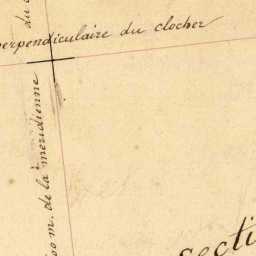 perpendiculaire du clocher
du
00 m. de la meridienne
Secti